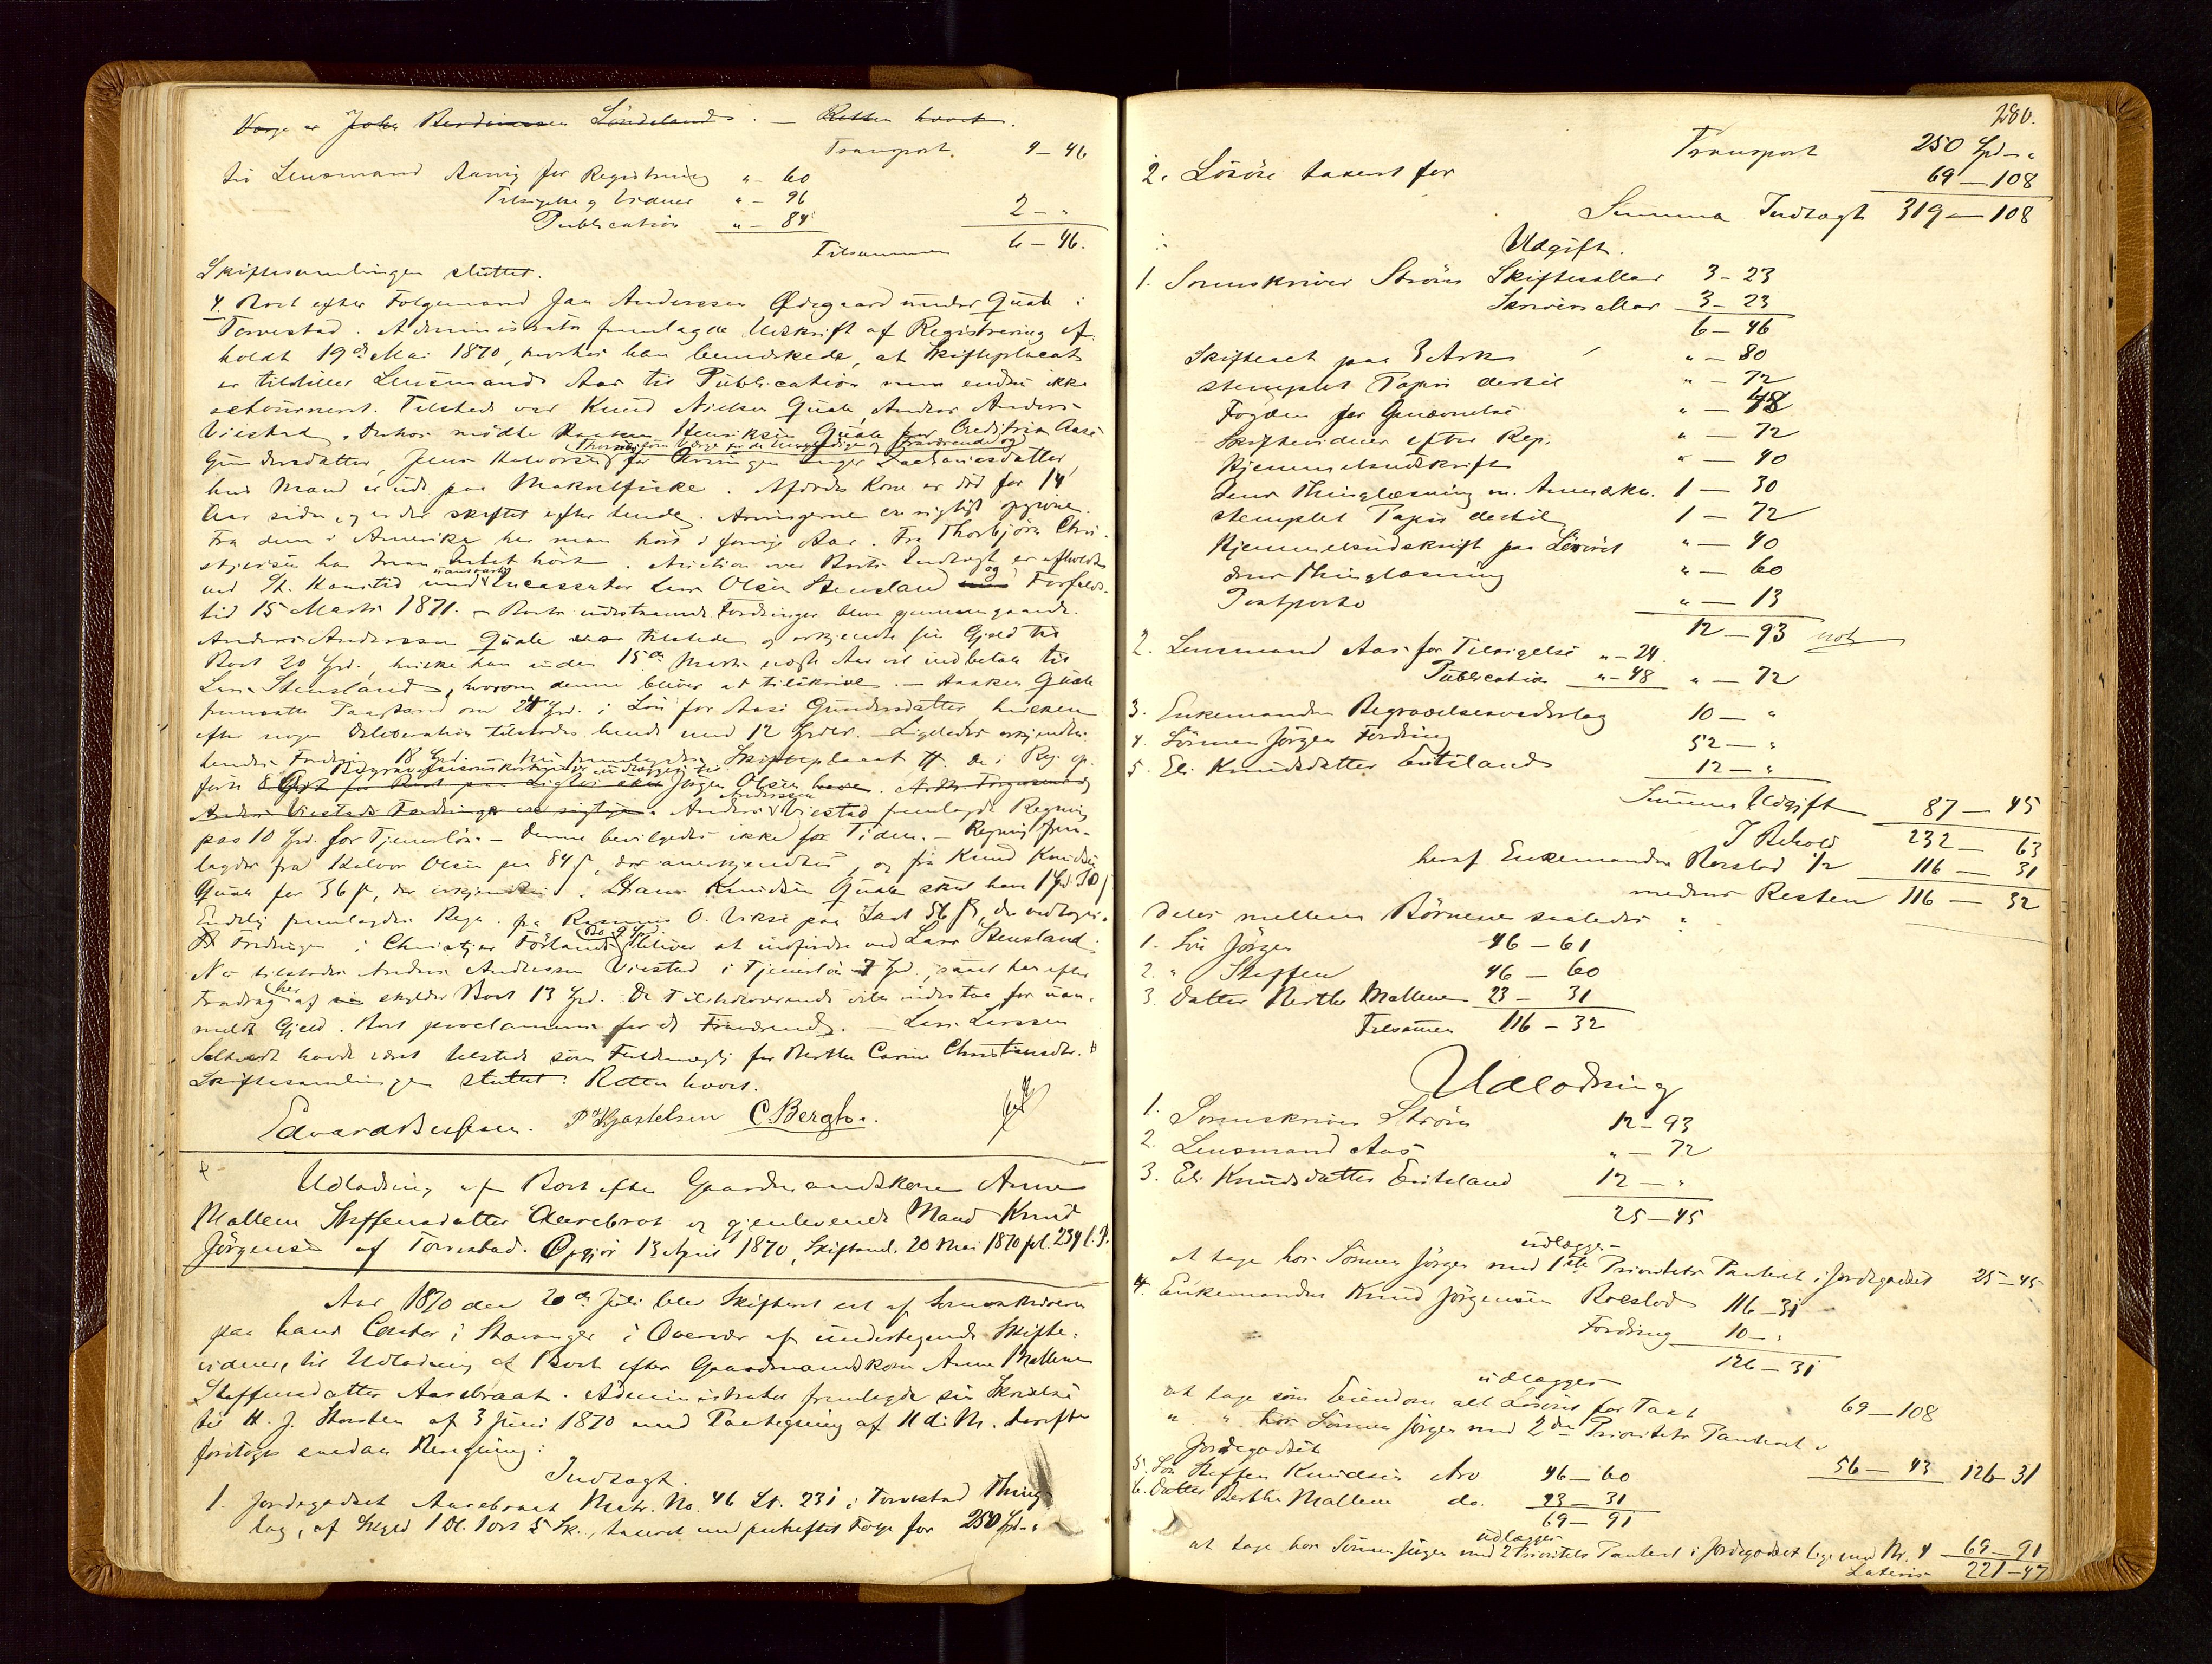 Vorge er John Berdinussen Löndelands. — Retten hævet.
Transport. 4 — 46
til Lensmand Aanig for Registrering " — 60
Tilsigelse og Vidner " — 96
Publication " — 84 2 — "
Tilsammen 6 — 46.
Skiftesamlingen sluttet.
4. Boet efter Folgemand Jan Anderssen Ødegaard under Quale i
Torvestad. Administrator fremlagde Udskrift af Registrering af-
holdt 19de Mai 1870, hvorhos han bemærkede, at Skifteplacat
er tilstillet Lensmand Aas til Publication men endnu ikke
retourneret. Tilstede var Knud Nielsen Quale, Anders Anders-
Viestad. Derhos mödte Haaken Henriksen Quale for Creditrix Aase
Gundersdatter, Jens Halvorsen for Arvingen Inger Zachariasdatter,
hvis Mand er ude paa Makrelfiske. Afdödes Kone er död for 14
Aar siden, og er der skiftet efter hende. Arvingerne er rigtigt opgivne.
Fra dem i Amerika har man hört i forrige Aar. Fra Thorbjörn Chri-
stjersen har man Intet hört. Auction over Boets Indtægt er afholdt
ved Sk. Hanstid med Incassator Lars Olsen Stensland og Forfalds-
tid 15 Marts 1871. — Boets udestaaende Fordringer blev gjennemgaaede.
Anders Anderssen Quale var tilstede og erkjendte sin Gjeld til
Boet 20 Spd., hvilke han inden 15de Marts næste Aar vil indbetale til
Lars Stensland, hvorom denne bliver at tilskrive. — Haaken Quale
fremsatte Paastand om 24 Spd. i Lön for Aase Gundersdatter hvilken
efter nogen Deliberation tilstodes hende med 12 Spdlr. — Ligeledes erkjendtes
hendes Fordring 18 Spd. — Skifteplacat #. De i Reg. op-
förte 8 Spd. Jörgen Olsen
Anders Viestads Fordringer ere rigtige. Anders Anderssen Viestad fremlagde Regning
paa 10 Spd. for Tjenerlön. — Denne bevilgedes ikke for Tiden. — Regning frem-
lagdes fra Halvor Olsen paa 84 ß, der anerkjendtes, og fra Knud Knudsen
Quale for 36 ß, der erkjendtes. Hans Knudsen Quale skal have 1 Spd.
Endelig fremlagdes Regn. fra Rasmus O. Vikse paa Skat 56 ß, der vedtoges.
Fordringen i Christjan Förland bliver at indfordre ved Lars Stensland.
Nu tilstodes Anders Anderssen Viestad i Tjenerlön 7 Spd., saaat han efter
Fradrag heraf skylder Boet 13 Spd. De Tilstedeværende ville indestaa for uan-
meldt Gjeld. Boet proclameres for de Fraværende. — Lars Larssen
Seltveit havde været tilstede som Fuldmægtig for Berthe Carine Christiansdtr. #
Skiftesamlingen sluttet. Retten hævet.
Edvard Bessesen. P Kjastelsen C. Bergh.
Udlodning af Boet efter Gaardmandskone Anne
Mallene Steffensdatter Aarebrot og gjenlevende Mand Knud
Jörgensen af Torvestad. Opgjör 13 April 1870, Skiftsaml. 20 Mai 1870 fol. 239 l.P.
Aar 1870 den 20de Juli blev Skifteret sat af Sorenskriveren
paa hans Contor i Stavanger i Overvær af undertegnede Skifte-
vidner, til Udlodning af Boet efter Gaardmandskone Anne Mallene
Steffensdatter Aarebraat. Administrator fremlagde sin Skrivelse
til H. J. Horsten af 3 Juni 1870 med Paategning af 11 d: M. derefter
foretoges saadan Beregning:
Indtægt.
1. Jordegodset Aarebraat Matr. No. 46 Lt. 231 i Torvestad Thing-
lag, af Skyld 1 Dl. 1 ort 5 Sk., taxeret med paaheftet Föge for 250 Spd — "
280.
Transport 250 Spd — "
2. Lösöre taxeret for 69 — 108
Summa Indtægt 319 — 108
Udgift.
1. Sorenskriver Ström Skiftesallar 3 — 23
Skriversallar 3 — 23
6 — 46
Skifteact paa 3 Ark " — 80
stemplet Papir dertil " — 72
Fogden for Genævnelse " — 48
Skiftevidner efter Rep. " — 72
Hjemmelsudskrift " — 40
dens Thinglæsning m. Anmærkn. 1 — 30
stemplet Papir dertil 1 — 72
Hjemmelsudskrift paa Lösöret " — 40
dens Thinglæsning " — 60
Postporto " — 13
12 — 93 not
2. Lensmand Aas for Tilsigelse " — 24
Publication " — 48 " — 72
3. Enkemanden Begravelsesvederlag 10 — "
4. Sönnen Jörgen Fordring 52 — "
5. Eli Knudsdatter Eritsland 12 — "
Summa Udgift 87 — 45
I Behold 232 — 63
heraf Enkemandens Boeslod 1/2 116 — 31
medens Resten 116 — 32
deles mellem Börnene saaledes:
1. Sön Jörgen 46 — 61
2. " Steffen 46 — 60
3. Datter Berthe Mallene 23 — 31
Tilsammen 116 — 32
Udlodning
1. Sorenskriver Ström 12 — 93
2. Lensmand Aas " — 72
3. Eli Knudsdatter Eritsland 12 — "
25 — 45
udlægges
at tage hos Sönnen Jörgen med 1ste Prioritets Panteret i Jordegodset 25 — 45
4. Enkemanden Knud Jörgensen Boeslod 116 — 31
Fordring 10 — "
126 — 31
udlægges
at tage som Eiendom alt Lösöre for Taxt 69 — 108
" " hos Sönnen Jörgen med 2den Prioritets Panteret i
Jordegodset 56 — 43 126 — 31
5. Sön Steffen Knudsen Arv 46 — 60
6. Datter Berthe Mallene do. 23 — 31
69 — 91
udlægges
at tage hos Sönnen Jörgen med 2 Prioritets Panteret i Jordegodset lige med Nr. 4 69 — 91
Lateris 221 — 47